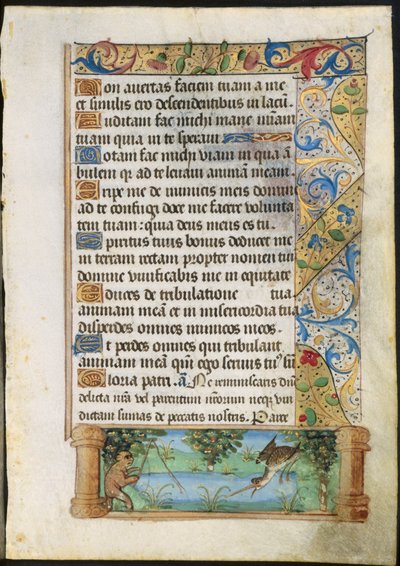 Non avertas faciem tuam a me
et similis ero descendentibus in lacū.
Auditam fac michi mane miam
tuam quia in te speravi
Notam fac michi viam in qua ā
bulem qr ad te levavi animam meam.
Eripe me de inimicis meis domine
ad te confugi doce me facere volunta
tem tuam: quia deus meus es tu.
Spiritus tuus bonus deducet me
in terram rectam propter nomen tuū
domine vivificabis me in equitate
Educes de tribulatione tua
animam meā et in misericordia tua
disperdes omnes inimicos meos.
Et perdes omnes qui tribulant
animam meā quī ego servus tuꝰ sū
Gloria patri. ā. Ne reminiscaris dn̄e
delicta nrā vel parentum nrōrum neqꝫ vin
dictam sumas de peccatis nostris. Parce